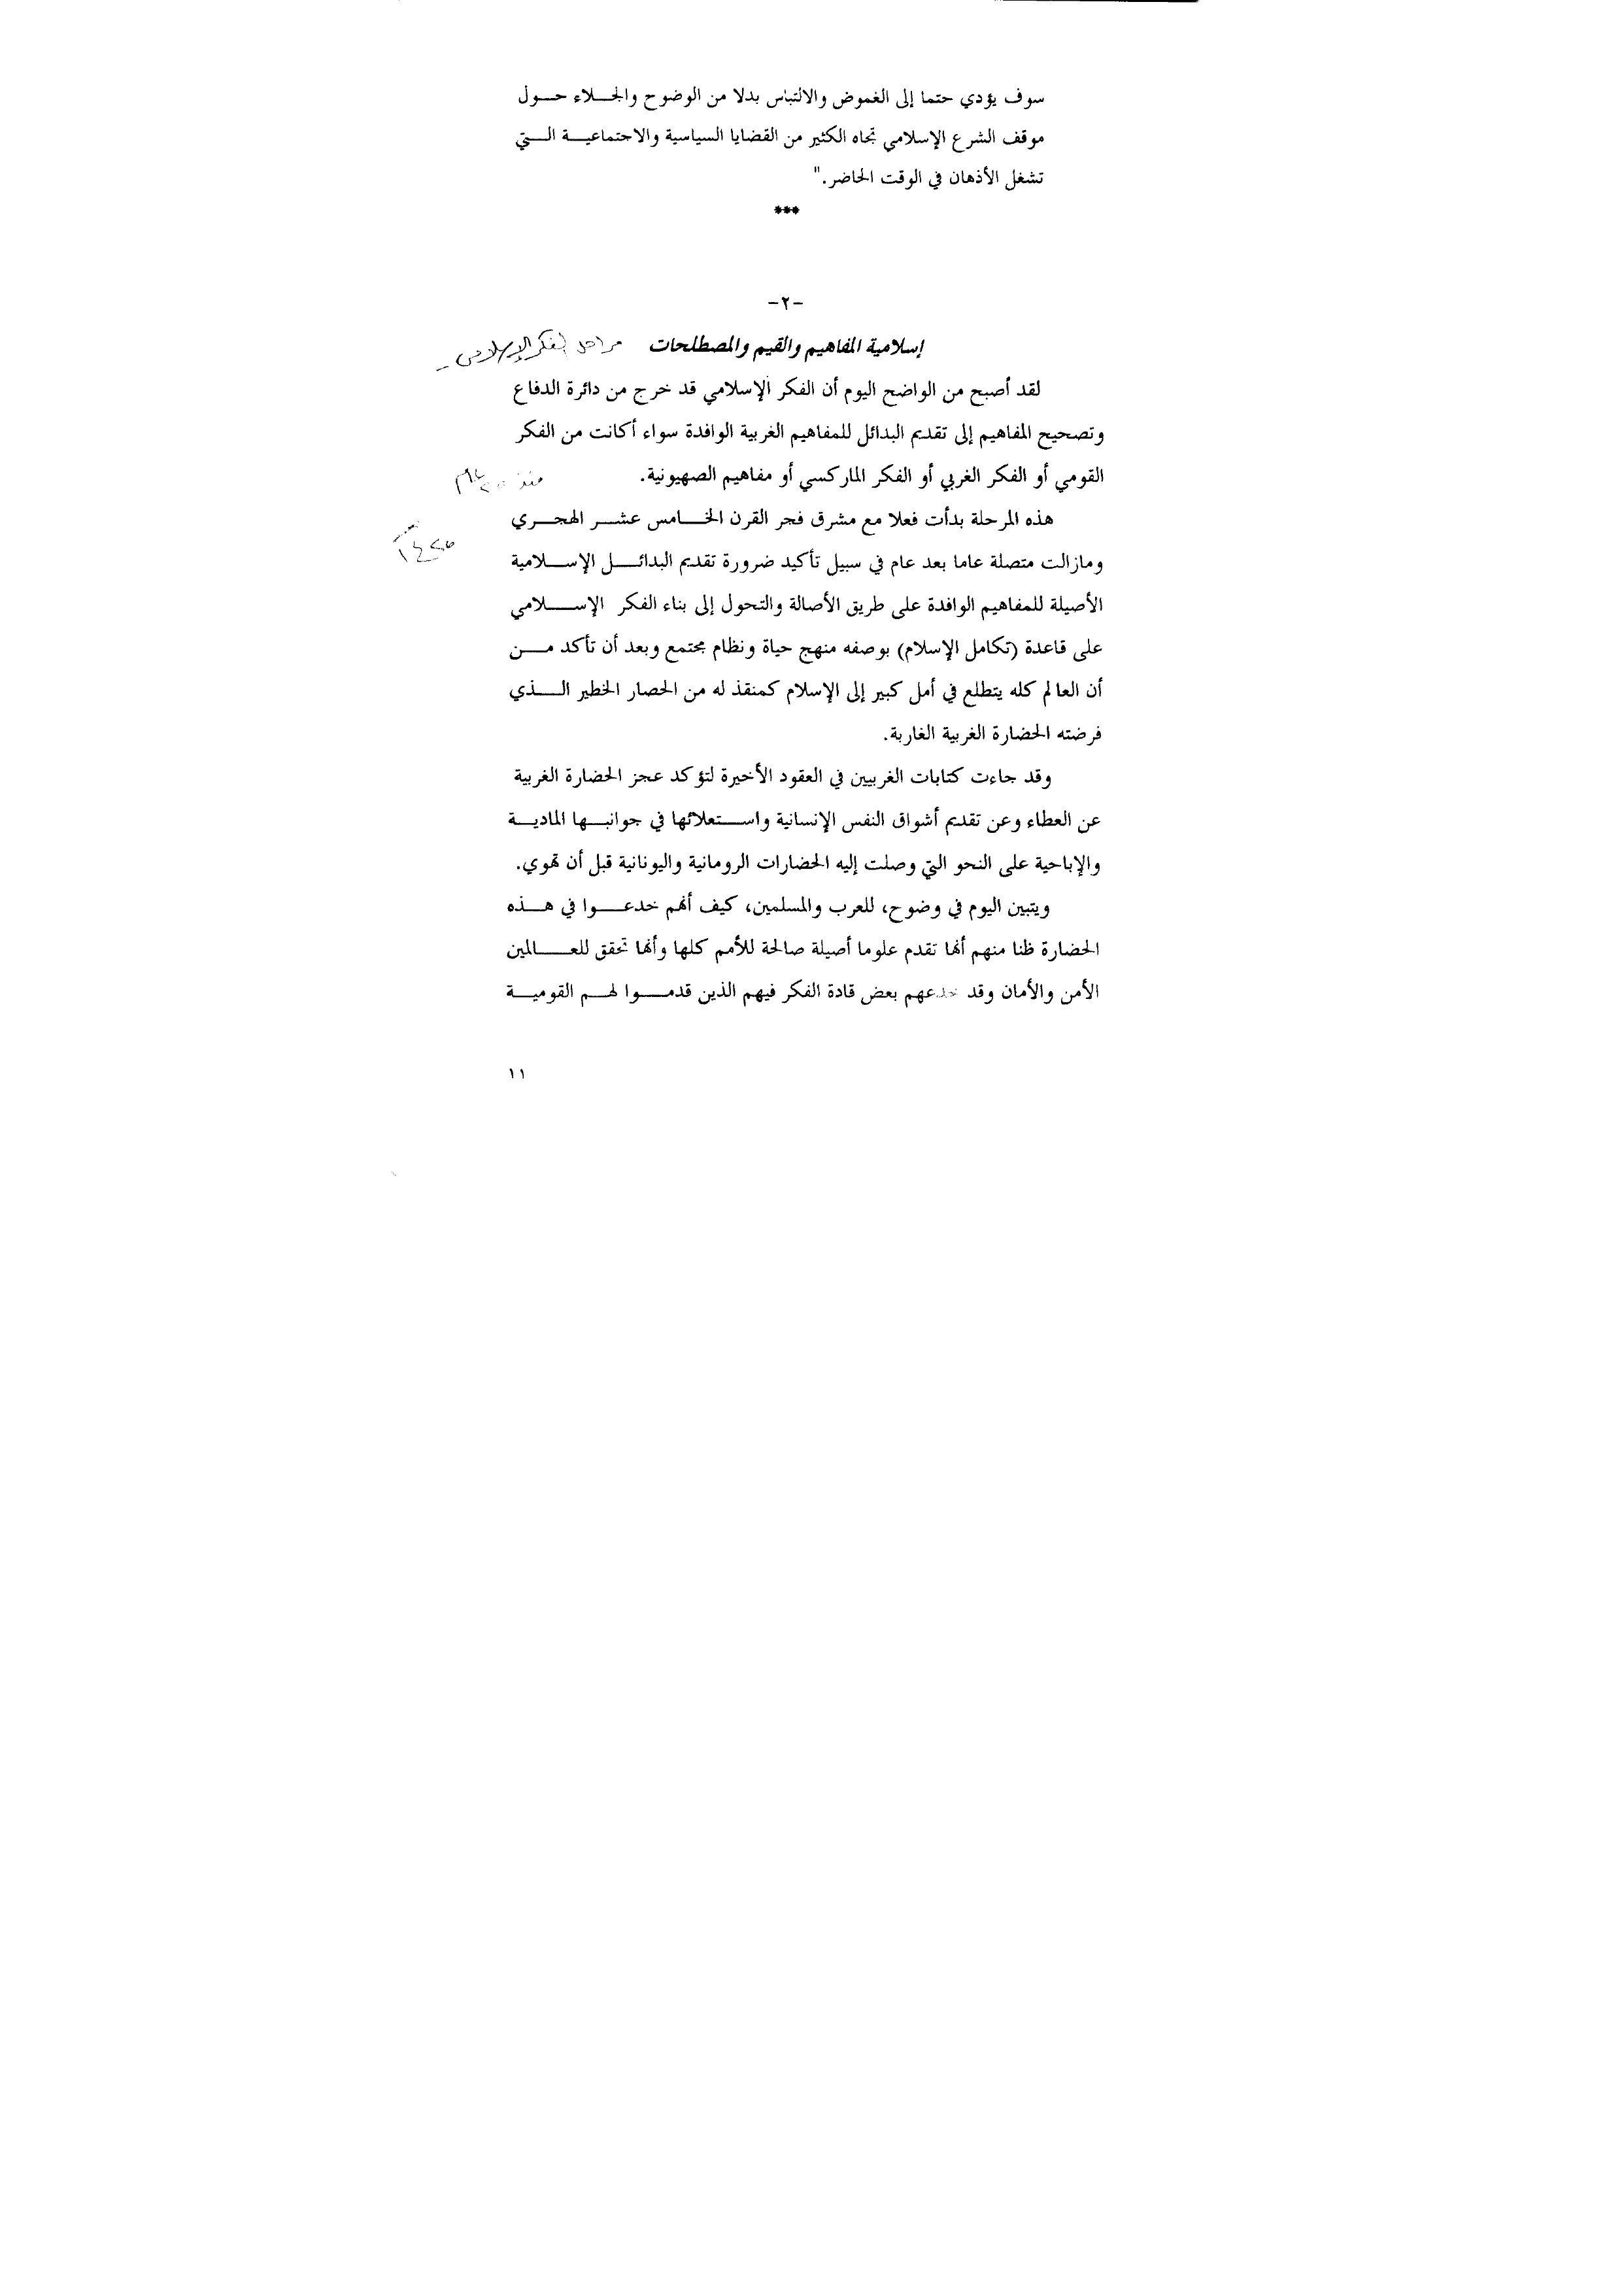 سوف يؤدي حتما إلى الغموض والالتباس بدلا من الوضوح والجلاء حول
موقف الشرع الإسلامي تجاه الكثير من القضايا السياسية والاجتماعية التي
تشغل الأذهان في الوقت الحاضر."
***
-٢-
إسلامية المفاهيم والقيم والمصطلحات مراحل الفكر الإسلامي
لقد أصبح من الواضح اليوم أن الفكر الإسلامي قد خرج من دائرة الدفاع
وتصحيح المفاهيم إلى تقديم البدائل للمفاهيم الغربية الوافدة سواء أكانت من الفكر
القومي أو الفكر الغربي أو الفكر الماركسي أو مفاهيم الصهيونية. منذ
هذه المرحلة بدأت فعلا مع مشرق فجر القرن الخامس عشر الهجري
ومازالت متصلة عاما بعد عام في سبيل تأكيد ضرورة تقديم البدائل الإسلامية
الأصيلة للمفاهيم الوافدة على طريق الأصالة والتحول إلى بناء الفكر الإسلامي
على قاعدة (تكامل الإسلام) بوصفه منهج حياة ونظام مجتمع وبعد أن تأكد من
أن العالم كله يتطلع في أمل كبير إلى الإسلام كمنقذ له من الحصار الخطير الذي
فرضته الحضارة الغربية الغاربة.
وقد جاءت كتابات الغربيين في العقود الأخيرة لتؤكد عجز الحضارة الغربية
عن العطاء وعن تقديم أشواق النفس الإنسانية واستعلائها في جوانبها المادية
والإباحية على النحو التي وصلت إليه الحضارات الرومانية واليونانية قبل أن تهوي.
ويتبين اليوم في وضوح، للعرب والمسلمين، كيف أنهم خدعوا في هذه
الحضارة ظنا منهم أنها تقدم علوما أصيلة صالحة للأمم كلها وأنها تحقق للعالمين
الأمن والأمان وقد خدعهم بعض قادة الفكر فيهم الذين قدموا لهم القومية
١١